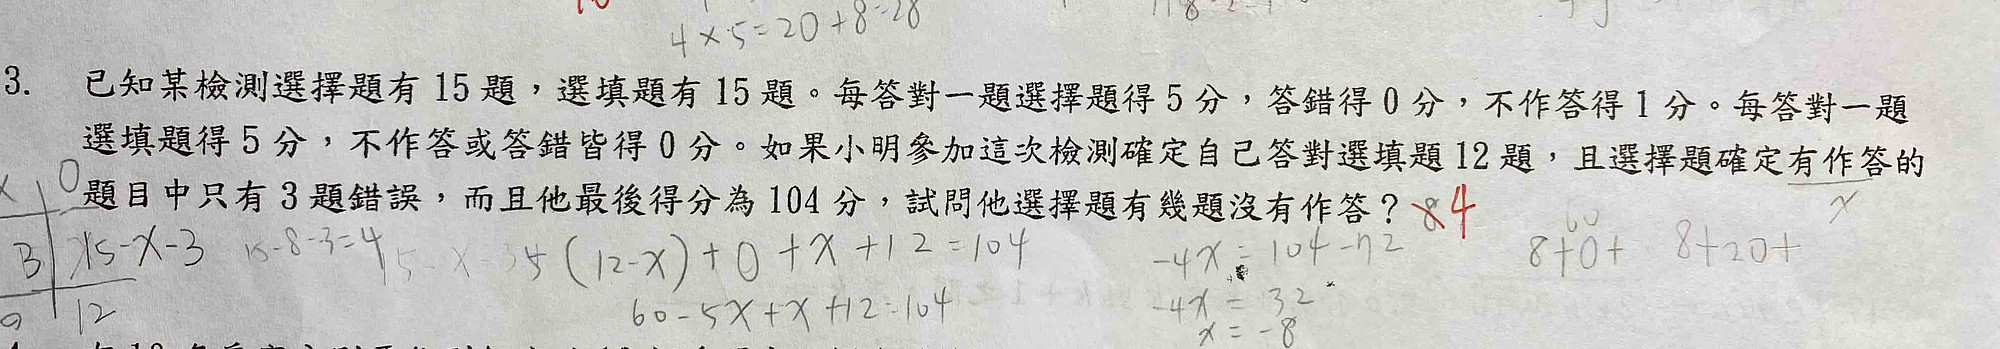 4×5=20+8=28
3. 已知某檢測選擇題有 15 題，選填題有 15 題。每答對一題選擇題得 5 分，答錯得 0 分，不作答得 1 分。每答對一題
選填題得 5 分，不作答或答錯皆得 0 分。如果小明參加這次檢測確定自己答對選填題 12 題，且選擇題確定有作答的
題目中只有 3 題錯誤，而且他最後得分為 104 分，試問他選擇題有幾題沒有作答？ 4
x
3 15-x-3
15-8-3=4
5(12-x)+0+x+12=104
-4x=104-72
8+0+
8+20+
12
60-5x+x+12=104
-4x=32
x=-8